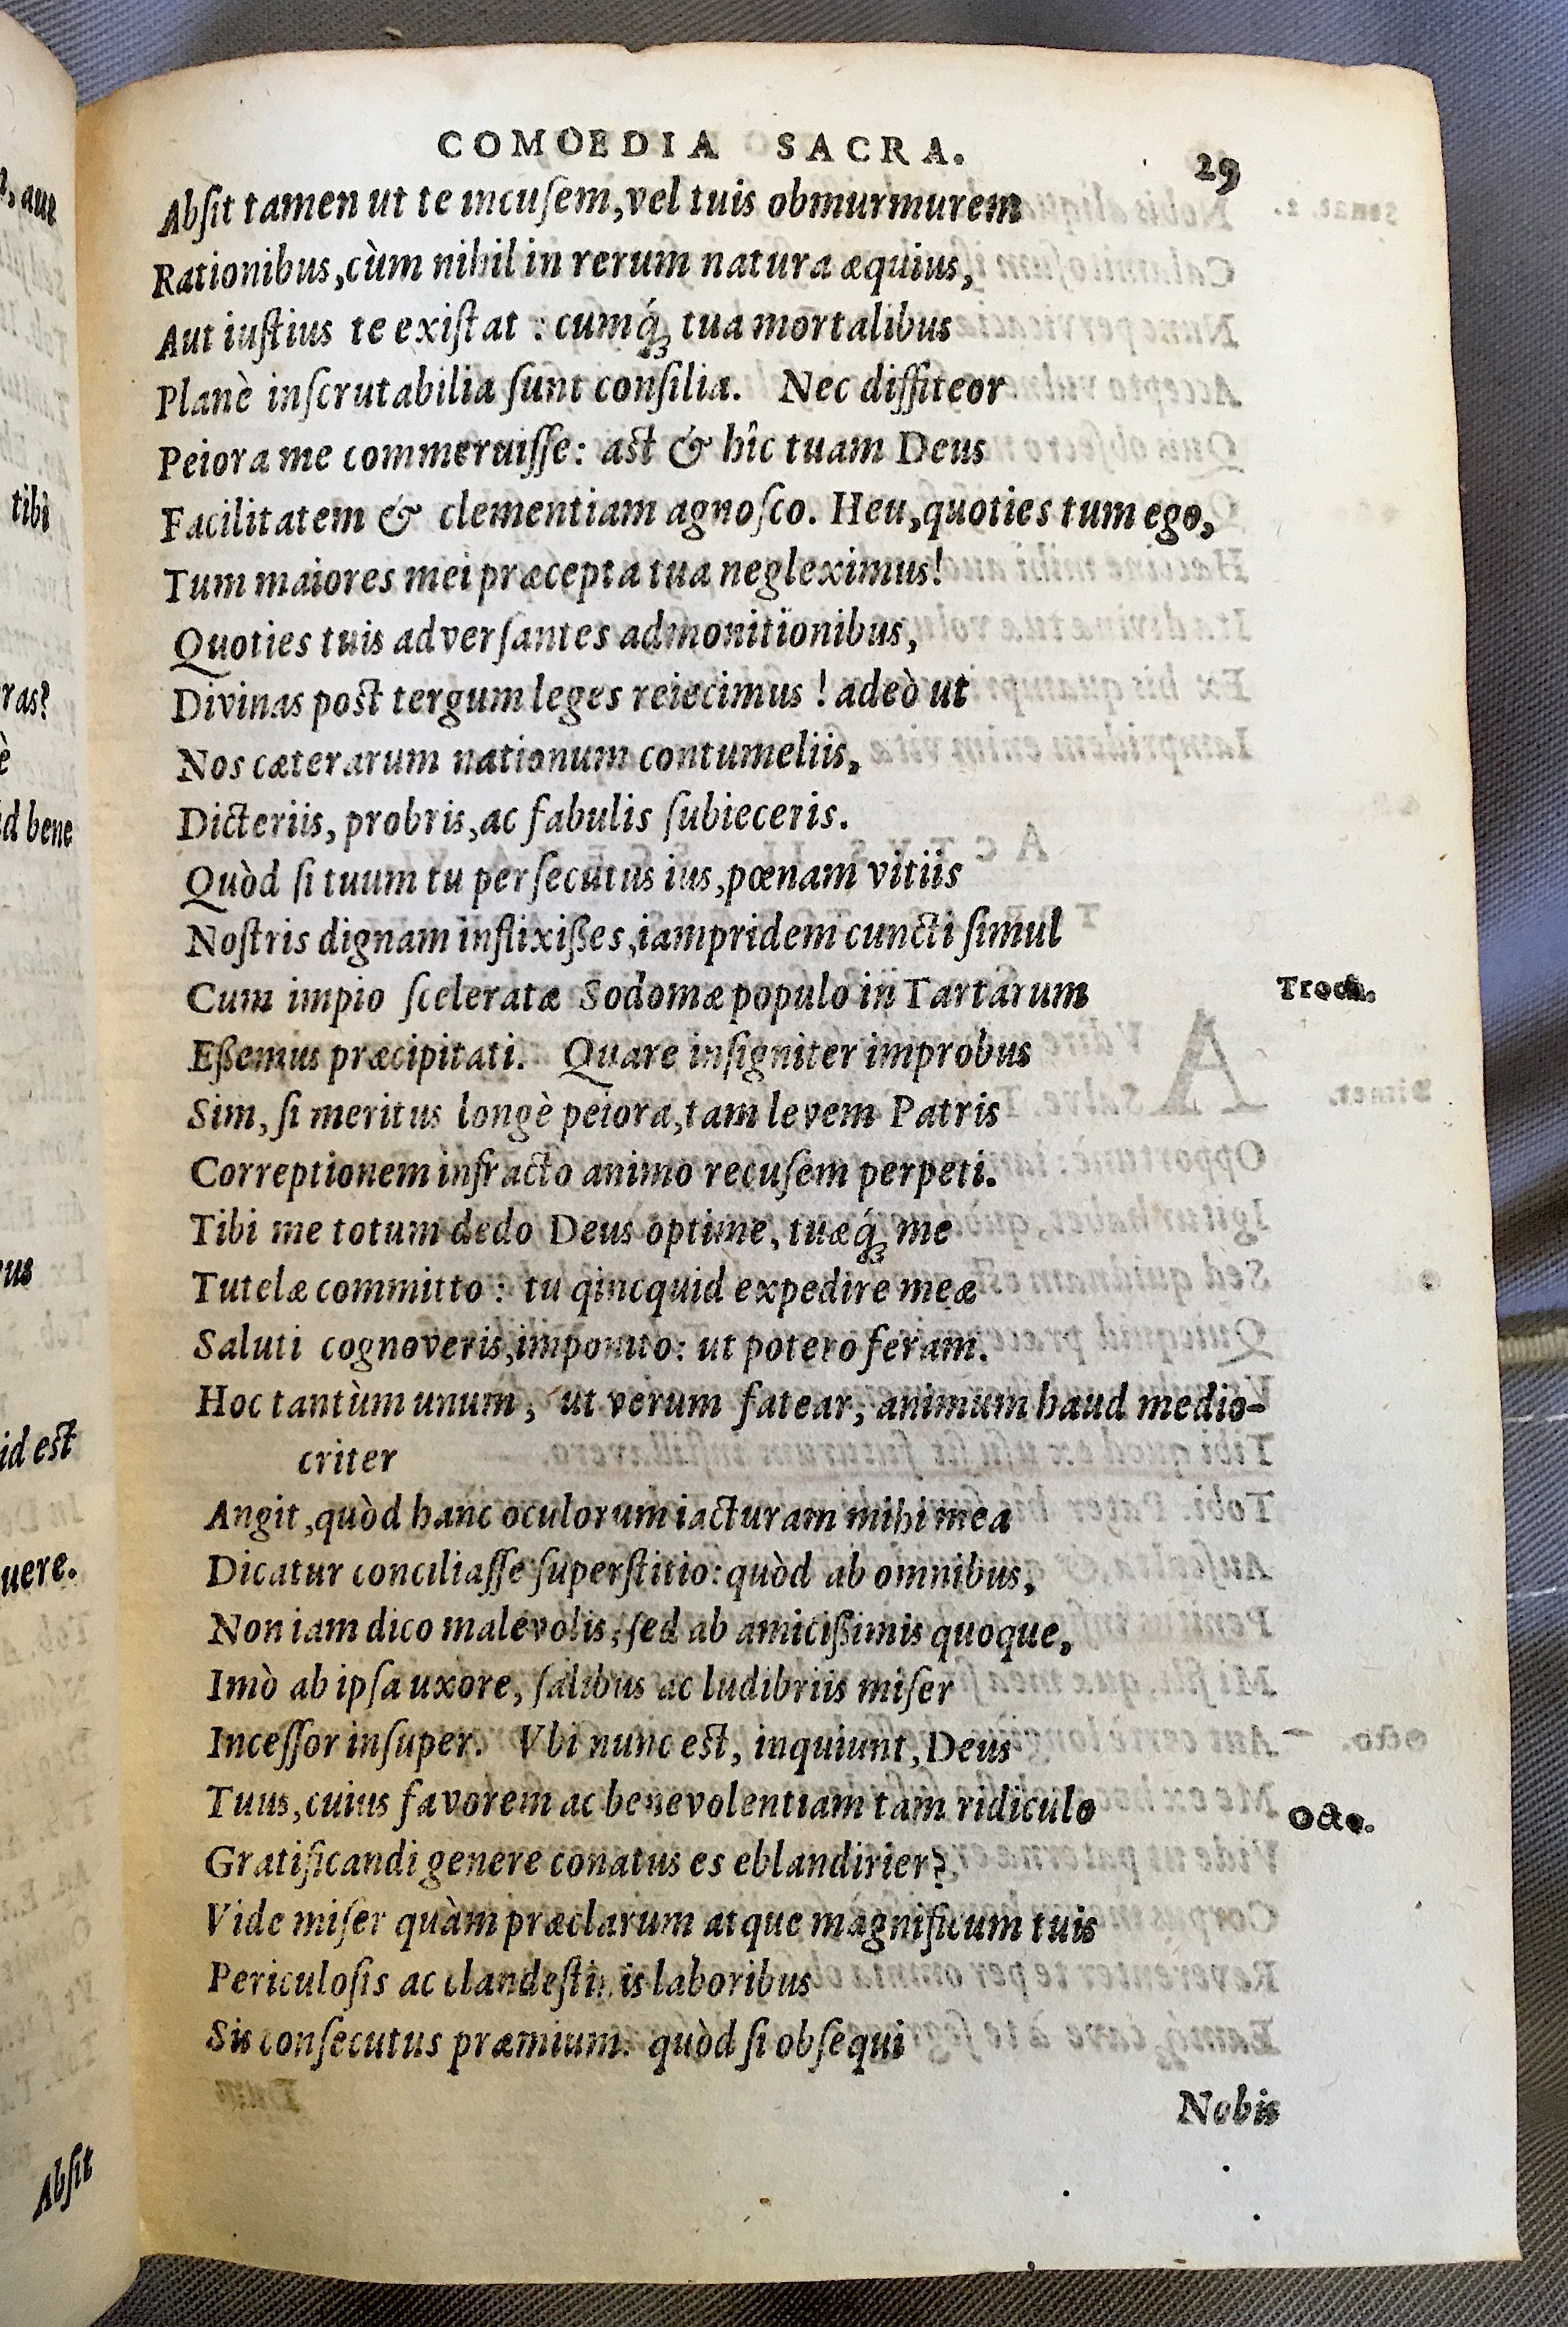 COMOEDIA SACRA. 29
Abſit tamen ut te incuſem, vel tuis obmurmurem
Rationibus, cùm nihil in rerum natura æquius,
Aut iuſtius te exiſtat : cumq́; tua mortalibus
Planè inſcrutabilia ſunt conſilia. Nec diffiteor
Peiora me commeruiſſe: aſt & hîc tuam Deus
Facilitatem & clementiam agnoſco. Heu, quoties tum ego,
Tum maiores mei præcepta tua negleximus!
Quoties tuis adverſantes admonitionibus,
Divinas poſt tergum leges reiecimus ! adeò ut
Nos cæterarum nationum contumeliis,
Dicteriis, probris, ac fabulis ſubieceris.
Quòd ſi tuum tu perſecutus ius, pœnam vitiis
Noſtris dignam inflixißes, iampridem cuncti ſimul
Cum impio ſceleratæ Sodomæ populo in Tartarum
Troch.
Eßemus præcipitati. Quare inſigniter improbus
Sim, ſi meritus longè peiora, tam levem Patris
Correptionem infracto animo recuſem perpeti.
Tibi me totum dedo Deus optime, tuæq́; me
Tutelæ committo : tu qincquid expedire meæ
Saluti cognoveris, imponito: ut potero feram.
Hoc tantùm unum, ut verum fatear, animum haud medio-
criter
Angit, quòd hanc oculorum iacturam mihi mea
Dicatur conciliaſſe ſuperſtitio: quòd ab omnibus,
Non iam dico malevolis, ſed ab amicißimis quoque,
Imò ab ipſa uxore, ſalibus ac ludibriis miſer
Inceſſor inſuper. Vbi nunc eſt, inquiunt, Deus
Tuus, cuius favorem ac benevolentiam tam ridiculo
Octo.
Gratificandi genere conatus es eblandirier?
Vide miſer quàm præclarum atque magnificum tuis
Periculoſis ac clandeſtinis laboribus
Sis conſecutus præmium. quòd ſi obſequi
Nobis
tibi
ras?
è
bene
id eſt
uere.
Abſit